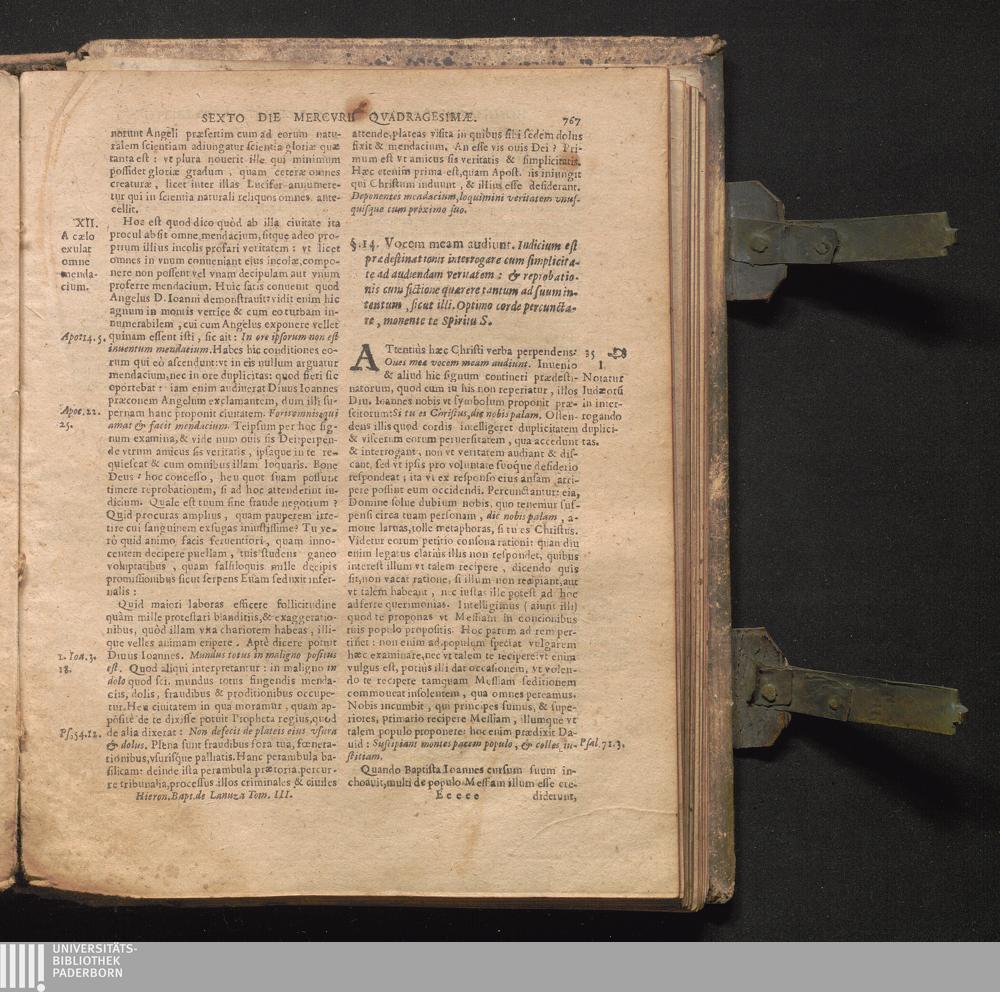 SEXTO DIE MERCVRII QVADRAGESIMÆ. 767
norunt Angeli præsertim cum ad eorum natu-
ralem scientiam adiungatur scientia gloriæ quæ
tanta est: vt plura nouerit ille qui minimum
possidet gloriæ gradum, quam ceteræ omnes
creaturæ, licet inter illas Lucifer annumere-
tur qui in scientia naturali reliquos omnes ante-
cellit.
XII.
A cælo
exulat
omne
menda-
cium.
Hoc est quod dico quòd ab illa ciuitate ita
procul absit omne mendacium, sitque adeo pro-
prium illius incolis profari veritatem: vt licet
omnes in vnum conueniant eius incolæ, compo-
nere non possent vel vnam decipulam aut vnum
proferre mendacium. Huic satis conuenit quod
Angelus D. Ioanni demonstrauit: vidit enim hic
agnum in montis vertice & cum eo turbam in-
numerabilem, cui cum Angelus exponere vellet
Apoc. 14. 5.
quinam essent isti, sic ait: In ore ipsorum non est
inuentum mendacium. Habes hic conditiones eo-
rum qui eò ascendunt: vt in eis nullum arguatur
mendacium, nec in ore duplicitas: quod fieri sic
oportebat: iam enim audiuerat Diuus Ioannes
præconem Angelum exclamantem, dum illi su-
Apoc. 22.
25.
pernam hanc proponit ciuitatem. Foris omnis qui
amat & facit mendacium. Teipsum per hoc sig-
num examina, & vide num ouis sis Dei: perpen-
de vtrum amicus sis veritatis, ipsaque in te re-
quiescat & cum omnibus illam loquaris. Bone
Deus! hoc concesso, heu quot suam possunt
timere reprobationem, si ad hoc attenderint iu-
dicium. Quale est tuum sine fraude negotium?
Quid procuras amplius, quam pauperem irre-
tire cui sanguinem exsugas iniustissime? Tu ve-
rò quid animo facis feruentiori, quam inno-
centem decipere puellam, tuis studens ganeo
voluptatibus, quam falsiloquis mille decipis
promissionibus sicut serpens Euam seduxit infer-
nalis:
Quid maiori laboras efficere sollicitudine
quàm mille protestari blanditiis, & exaggeratio-
nibus, quòd illam vita chariorem habeas, illi-
que velles animam eripere. Aptè dicere potuit
1. Ioa. 3.
18.
Diuus Ioannes. Mundus totus in maligno positus
est. Quod aliqui interpretantur: in maligno in
dolo quod sci. mundus totus fingendis menda-
ciis, dolis, fraudibus & proditionibus occupe-
tur. Heu ciuitatem in qua moramur, quam ap-
positè de te dixisse potuit Propheta regius, quod
Ps. 54. 12.
de alia dixerat: Non defecit de plateis eius vsura
& dolus. Plena sunt fraudibus fora tua, fœnera-
tionibus, vsurisque palliatis. Hanc perambula ba-
silicam: deinde ista perambula prætoria, percur-
re tribunalia, processus illos criminales & ciuiles
Hieron. Bapt. de Lanuza Tom. III.
attende, plateas visita in quibus sibi sedem dolus
fixit & mendacium. An esse vis ouis Dei? Pri-
mum est vt amicus sis veritatis & simplicitatis.
Hæc etenim prima est, quam Apost. iis iniungit
qui Christum induunt, & illius esse desiderant.
Deponentes mendacium, loquimini veritatem vnus-
quisque cum próximo suo.
§. 14. Vocem meam audiunt. Iudicium est
prædestinationis interrogare cum simplicita-
te ad audiendam veritatem: & reprobatio-
nis cum fictione quærere tantum ad suum in-
tentum, sicut illi. Optimo corde percuncta-
re, monente te Spiritu S.
ATtentiùs hæc Christi verba perpendens:
Oues meæ vocem meam audiunt. Inuenio
& aliud hic signum contineri prædesti-
natorum, quod cum in his non reperiatur, illos
Diu. Ioannes nobis vt symbolum proponit præ-
scitorum: Si tu es Christus, dic nobis palam. Osten-
dens illis quod cordis intelligeret duplicitatem
& viscerum eorum peruersitatem, qua accedunt
35
I.
Notatur
Iudæorū
in inter-
rogando
duplici-
tas.
& interrogant, non vt veritatem audiant & dis-
cant, sed vt ipsis pro voluntate suoque desiderio
respondeat; ita vt ex responso eius ansam arri-
pere possint eum occidendi. Percunctantur: eia,
Domine solue dubium nobis, quo tenemur sus-
pensi circa tuam personam, dic nobis palam, a-
moue laruas, tolle metaphoras, si tu es Christus.
Videtur eorum petitio consona rationi: quan diu
enim legatus clariùs illis non respondet, quibus
interest illum vt talem recipere, dicendo quis
sit, non vacat ratione, si illum non recipiant, aut
vt talem habeant, nec iustas ille potest ad hoc
adferre querimonias. Intelligimus (aiunt illi)
quod te proponas vt Messiam in concionibus
tuis populo propositis. Hoc parum ad rem per-
tinet: non enim ad populum spectat vulgarem
hæc examinare, nec vt talem te recipere: vt enim
vulgus est, potiùs illi dat occasionem, vt volen-
do te recipere tamquam Messiam seditionem
commoueat insolentem, qua omnes pereamus.
Nobis incumbit, qui principes sumus, & supe-
riores, primario recipere Messiam, illumque vt
talem populo proponere: hoc enim prædixit Da-
uid: Suscipiant montes pacem populo, & colles iu-
stitiam.
Psal. 71. 3.
Quando Baptista Ioannes cursum suum in-
choauit, multi de populo Messiam illum esse cre-
Eeeee diderunt,
UNIVERSITÄTS-
BIBLIOTHEK
PADERBORN